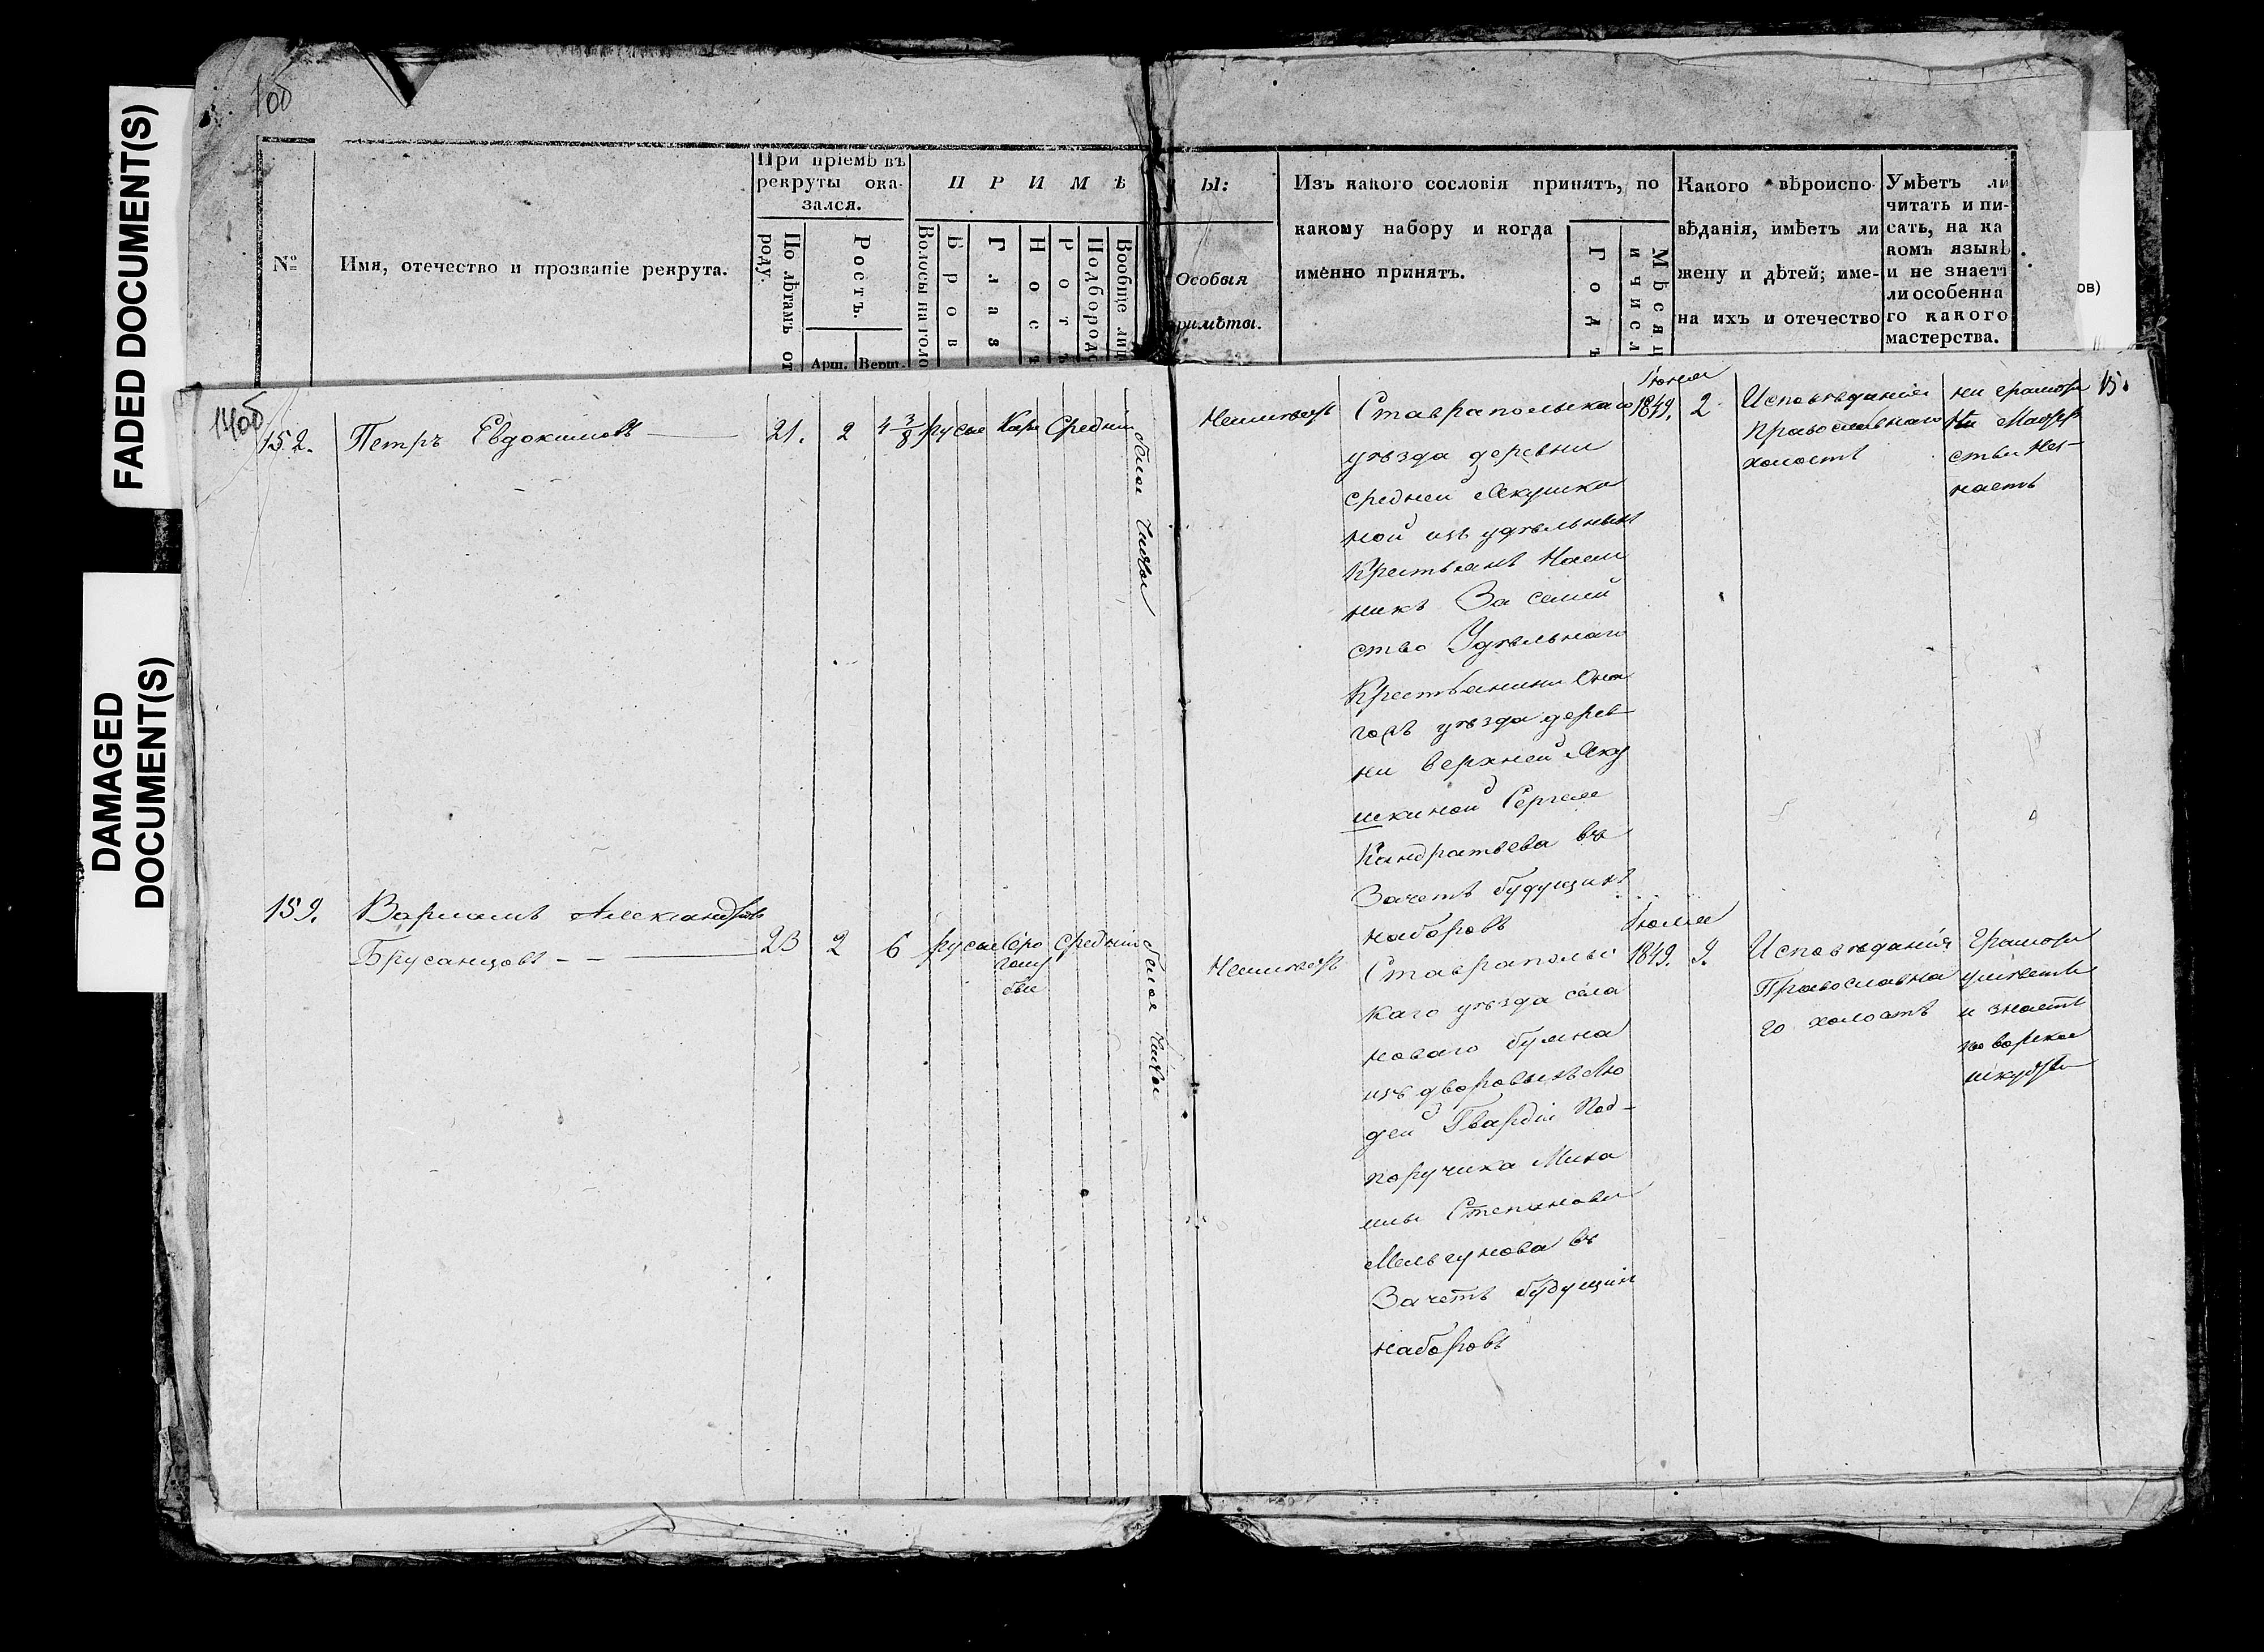 FADED DOCUMENT(S)
DAMAGED
DOCUMENT(S)
10об
№
Имя, отечество и прозваніе рекрута.
При пріемѣ въ
рекруты ока-
зался.
По лѣтамъ от
роду.
Ростъ.
Арш.
Верш.
ПРИМѢ
Волосы на голо
Бров
Глаз
Носъ
Ротъ
Подбородо
Вообще лиц
Ы:
Особыя
примѣты.
Изъ какого сословія принятъ, по
какому набору и когда
именно принятъ.
Годъ
Мѣсяц
и числ
Какого вѣроиспо-
вѣданія, имѣетъ ли
жену и дѣтей; име-
на ихъ и отечество
Умѣетъ ли
читать и пи-
сать, на ка
комъ языкѣ
и не знаетъ
ли особенна
го какого
мастерства.
ов)
14об
152.
Петръ Евдокимовъ
21.
2
4 3/8
русые
Кари
Средніи
белое чистое
Неимѣетъ
Ставрапольскаго
уѣзда деревни
средней Якушки
ной изъ удѣльныхъ
Крестьянъ Наем
никъ За семей
ство Удѣльнаго
Крестьянина Она
гожъ уѣзда дерев
ни верхней Яку
шкиной Сергея
Кандратьева въ
Зачетъ будущихъ
наборовъ
Июня
1849.
2
Исповѣдания
Православнаго
холостъ
ни грамоты
ни Мастер
ства Нез-
наетъ
15.
159.
Варламъ Александровъ
Брусанцовъ
23
2
6
русые
серо
голу
бые
Средніи
белое чистое
Неимѣетъ
Ставрапольс
каго уѣзда села
новаго буяна
изъ дворовыхъ Лю
дей Гвардіи Под-
поручика Миха
илы Степанова
Мельгунова въ
Зачетъ будущих
наборовъ
Июля
1849.
9.
Исповѣданія
Православна
го холостъ
Грамоти
умѣетъ
и знаетъ